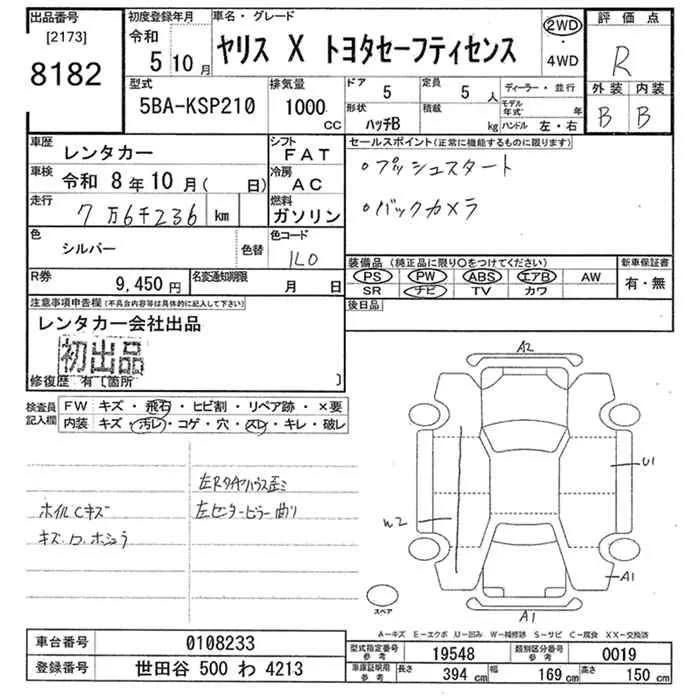 出品番号
[2173]
8182
初度登録年月
令和
5 10月
車名・グレード
ヤリス X トヨタセーフティセンス
2WD
・
4WD
評価点
R
外装 内装
B B
型式
5BA-KSP210
排気量
1000
CC
ドア
5
定員
5 人
形状
ハッチB
積載
kg
ディーラー・並行
モデル年式 年
ハンドル 左・右
車歴
レンタカー
車検 令和 8年10月( 日)
走行
7万6千236 km
シフト
FAT
冷房
AC
燃料
ガソリン
セールスポイント(正常に機能するものに限ります)
○プッシュスタート
○バックカメラ
色
シルバー
色替
色コード
1L0
R券
9,450円
名変通知期限
月 日
装備品 (純正品に限り○をつけてください)
PS PW ABS エアB AW
SR ナビ TV カワ
新車保証書
有・無
後日品
注意事項申告欄(不具合内容等は具体的に記入して下さい)
レンタカー会社出品
初出品
修復歴 有〔箇所 〕
検査員記入欄
FW キズ・飛石・ヒビ割・リペア跡・×要
内装 キズ・汚レ・コゲ・穴・スレ・キレ・破レ
左Rタイヤハウス歪ミ
ホイルCキズ
左センターピラー曲り
A2
U1
W2
A1
A1
スペア
A-キズ E-エクボ U-凹み W-補修跡 S-サビ C-腐食 XX-交換済
車台番号
0108233
登録番号
世田谷 500 わ 4213
型式指定番号
参考
19548
類別区分番号
参考
0019
車庫証明用
参考
長さ
394 cm
幅
169 cm
高さ
150 cm